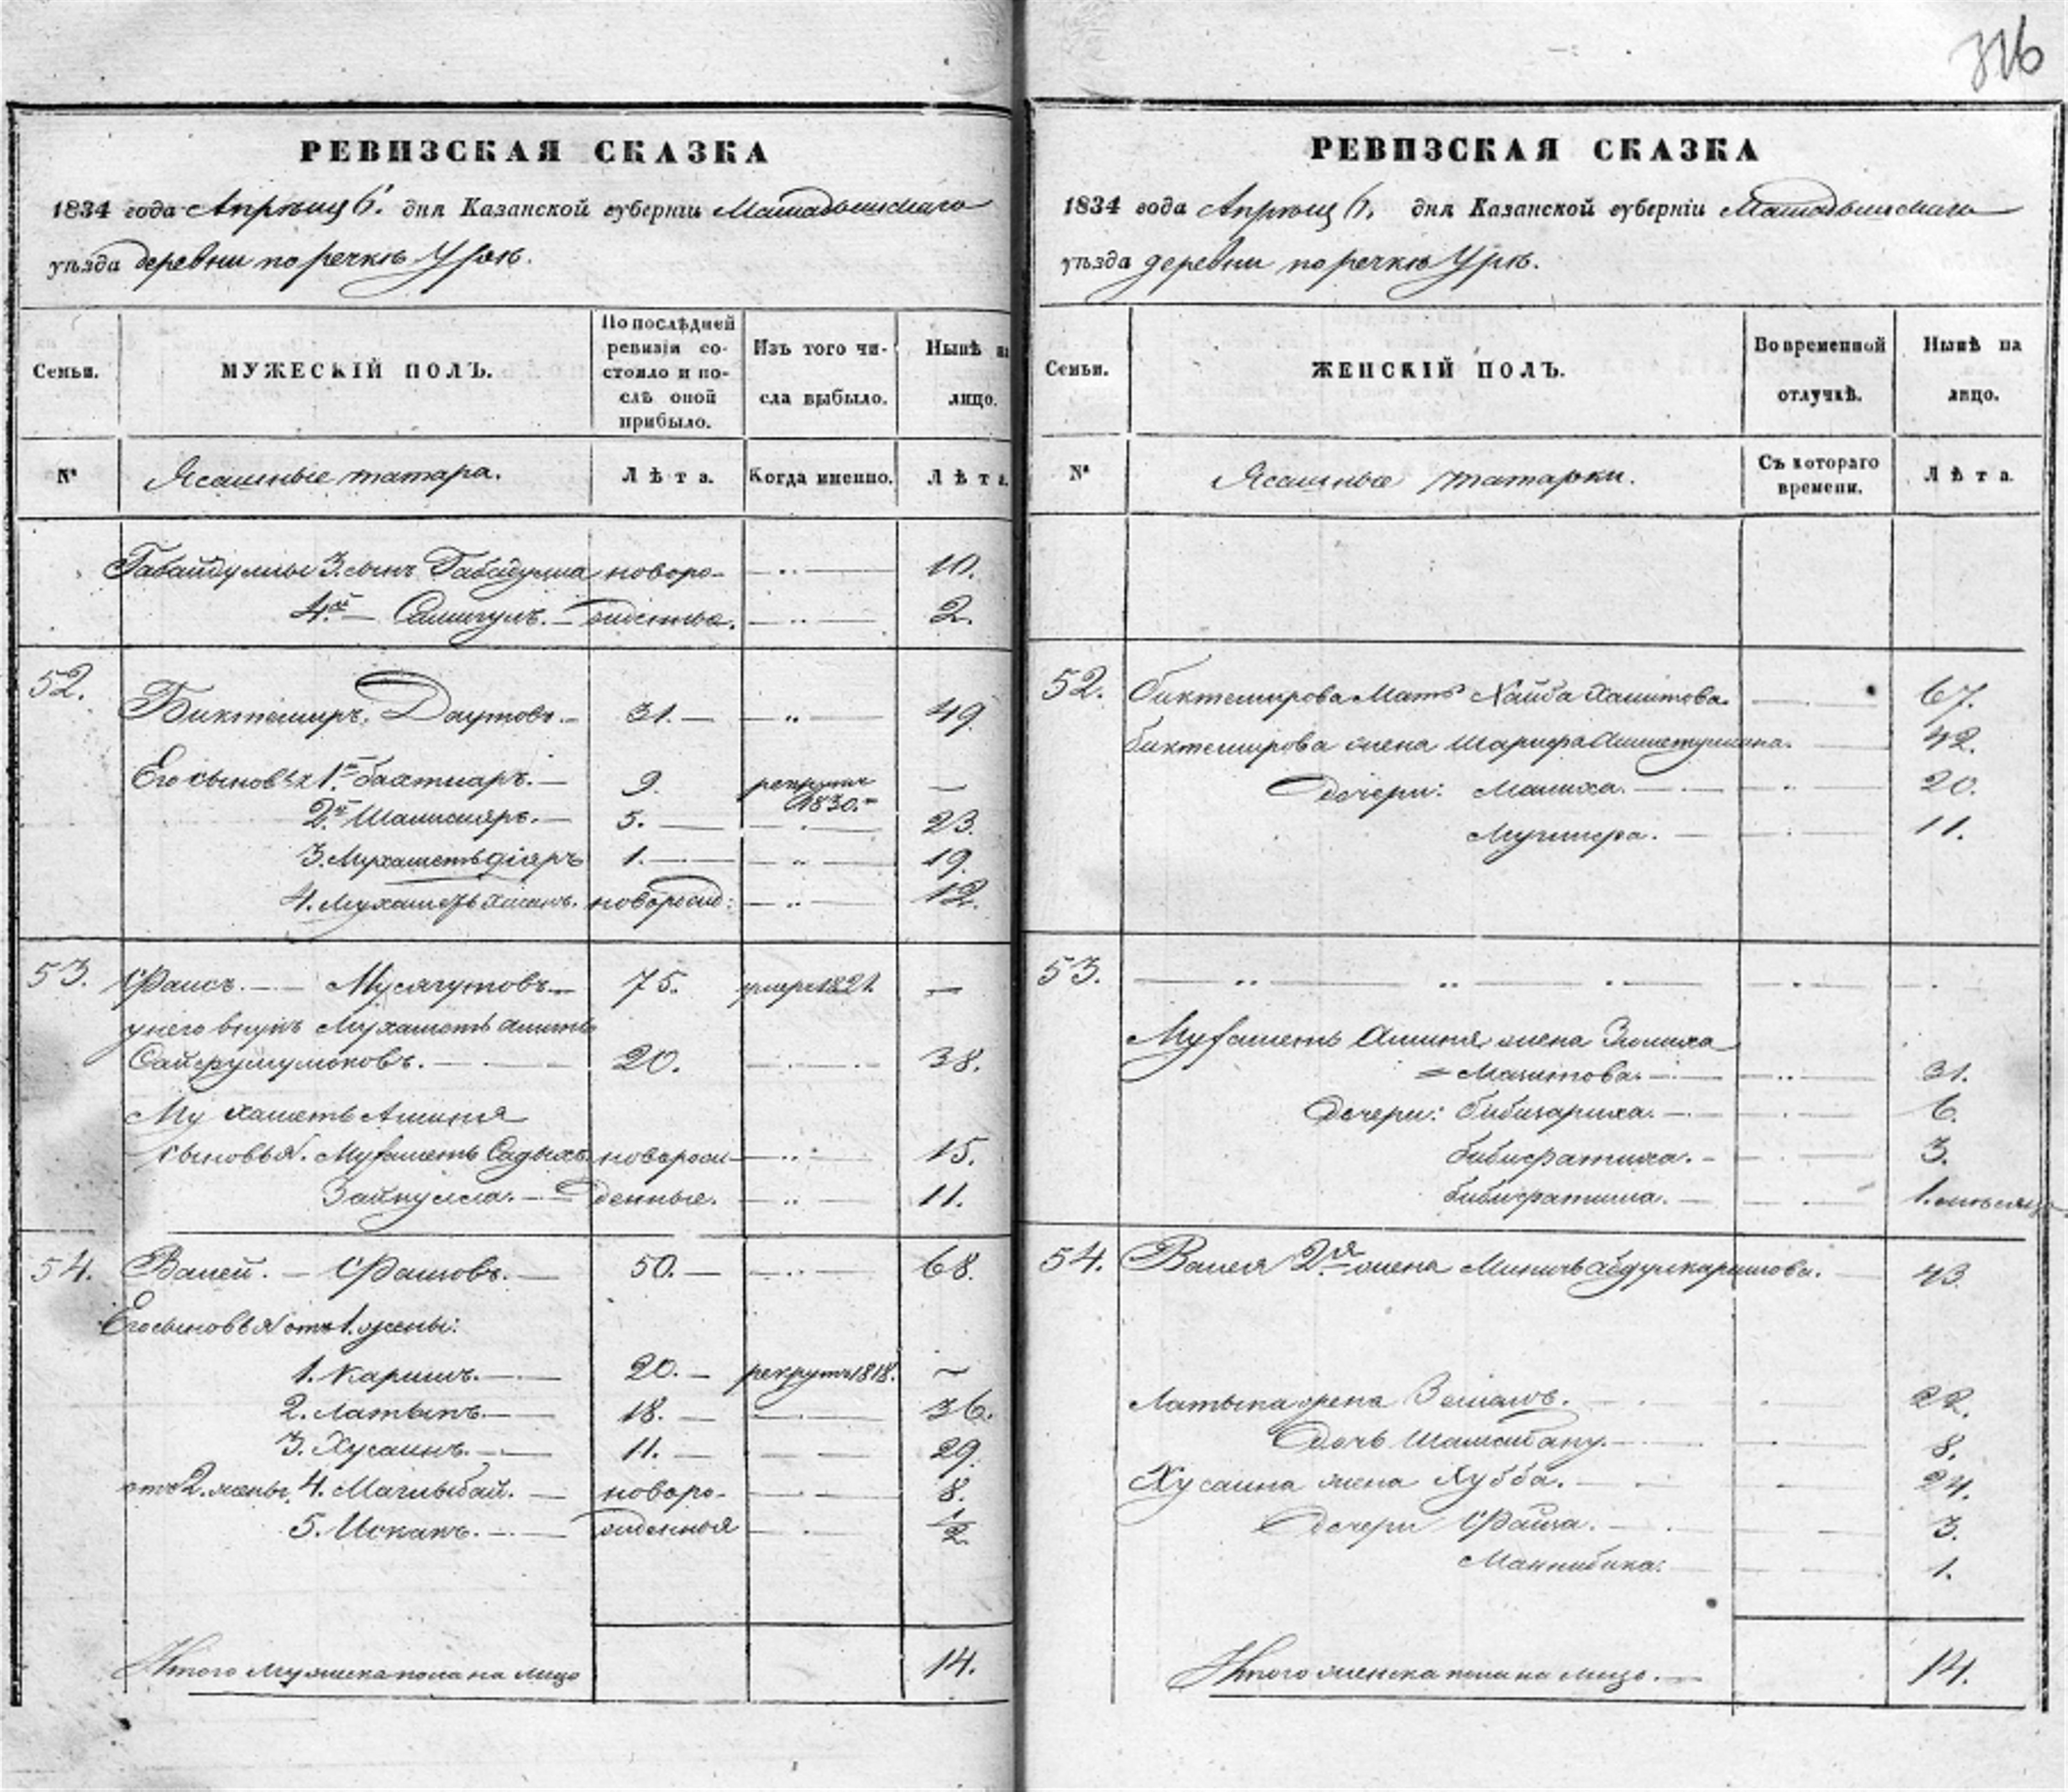 316
РЕВИЗСКАЯ СКАЗКА
1834 года Апрѣля 6. дня Казанской губерніи Мамадышскаго
уѣзда деревни по речкѣ Урѣ.
Семьи.
МУЖЕСКІЙ ПОЛЪ.
По послѣдней ревизіи состояло и послѣ оной прибыло.
Изъ того числа выбыло.
Нынѣ на лицо.
№
Ясашные татара.
Лѣта.
Когда именно.
Лѣта.
Габайдуллы 3. сынъ Габдулла новоро- 10.
4й Самигулъ. жденные. 2.
52.
Биктемиръ Даутовъ. 31. 49
Его сыновья 1й бахтиаръ. 9. рекрутъ 1830.
2й Шамсияръ. 5. 23.
3. Мухаметьдіяръ 1. 19.
4. новорожд: 12.
53. Фаисъ. Мусагутовъ. 75. умеръ 1821.
у него внукъ Мухаметь аминь
20. 38.
Мухаметь Аминя
сыновья. Мухаметь Садыкъ новорож- 15.
Зайнулла. денные. 11.
54. Валей. Фаисовъ. 50. 68.
Его сыновья отъ 1. жены:
1. Каримъ. 20. рекрутъ 1818.
2. Латыпъ. 18. 36.
3. Хусаинъ. 11. 29.
отъ 2. жены 4. новоро- 8.
5. жденныя 1/2
Итого мужеска пола на лицо 14.
РЕВИЗСКАЯ СКАЗКА
1834 года Апрѣля 6, дня Казанской губерніи Мамадышскаго
уѣзда деревни по речкѣ Урѣ.
Семьи.
ЖЕНСКІЙ ПОЛЪ.
Во временной отлучкѣ.
Нынѣ на лицо.
№
Ясашные татарки.
Съ котораго времени.
Лѣта.
52. биктемирова Мать Хамитова. 67.
биктемирова жена Шарифа 42.
Дочери: Малиха. 20.
11.
53.
Мухаметь Аминя жена Зюлиха
31.
Дочери: 6.
3.
бибифатима. 1. месяца.
54. Валея 2я жена Абдулкаримова. 43.
Латыпа жена 22.
Дочь Шамсибану. 8.
Хусаина жена Хубба. 24.
Дочери Фаиза. 3.
Маннибика. 1.
Итого женска пола на лицо. 14.